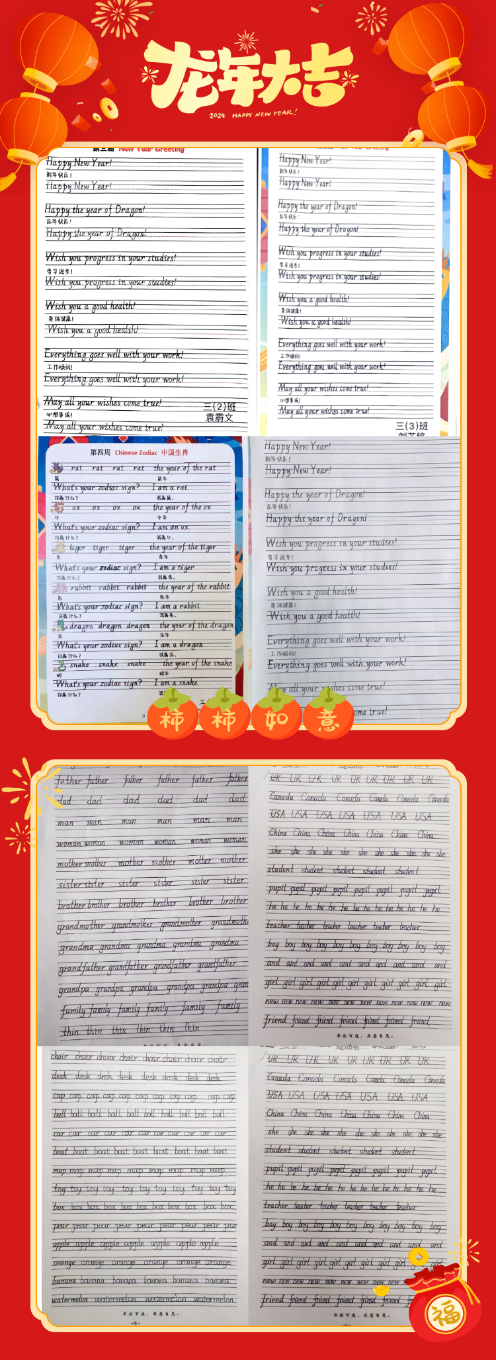 龙年大吉
2024 HAPPY NEW YEAR!
New Year Greeting
Happy New Year!
新年快乐!
Happy New Year!
Happy the year of Dragon!
龙年快乐!
Happy the year of Dragon!
Wish you progress in your studies!
学习进步!
Wish you progress in your studies!
Wish you a good health!
身体健康!
Wish you a good health!
Everything goes well with your work!
工作顺利!
Everything goes well with your work!
May all your wishes come true!
心想事成!
May all your wishes come true!
三(2)班
袁霸文
New Year Greeting
Happy New Year!
新年快乐!
Happy New Year!
Happy the year of Dragon!
龙年快乐!
Happy the year of Dragon!
Wish you progress in your studies!
学习进步!
Wish you progress in your studies!
Wish you a good health!
身体健康!
Wish you a good health!
Everything goes well with your work!
工作顺利!
Everything goes well with your work!
May all your wishes come true!
心想事成!
May all your wishes come true!
三(3)班
第四周 Chinese Zodiac 中国生肖
rat rat rat rat the year of the rat
鼠 鼠年
What's your zodiac sign? I am a rat.
你属什么? 我属鼠。
ox ox ox ox the year of the ox
牛 牛年
What's your zodiac sign? I am an ox.
你属什么? 我属牛。
tiger tiger tiger the year of the tiger
虎 虎年
What's your zodiac sign? I am a tiger.
你属什么? 我属虎。
rabbit rabbit rabbit the year of the rabbit
兔 兔年
What's your zodiac sign? I am a rabbit.
你属什么? 我属兔。
dragon dragon dragon the year of the dragon
龙 龙年
What's your zodiac sign? I am a dragon.
你属什么? 我属龙。
snake snake snake the year of the snake
蛇 蛇年
What's your zodiac sign? I am a snake.
你属什么? 我属蛇。
Happy New Year!
新年快乐!
Happy New Year!
Happy the year of Dragon!
龙年快乐!
Happy the year of Dragon!
Wish you progress in your studies!
学习进步!
Wish you progress in your studies!
Wish you a good health!
身体健康!
Wish you a good health!
Everything goes well with your work!
工作顺利!
Everything goes well with your work!
May all your wishes come true!
come true!
柿柿如意
father father father father father father
dad dad dad dad dad
man man man man man
woman woman woman woman woman
mother mother mother mother mother
sister sister sister sister sister
brother brother brother brother brother
grandmother grandmother grandmother grandmother
grandma grandma grandma grandma grandma
grandfather grandfather grandfather grandfather
grandpa grandpa grandpa grandpa grandpa gran
family family family family family
thin thin thin thin thin
UK UK UK UK UK UK UK UK
Canada Canada Canada Canada Canada
USA USA USA USA USA USA
China China China China China China
she she she she she she she she she
student student student student student
pupil pupil pupil pupil pupil pupil pupil
he he he he he he he he he he he he
teacher teacher teacher teacher teacher teacher
boy boy boy boy boy boy boy boy boy
and and and and and and and and
girl girl girl girl girl girl girl girl girl
new new new new new new new new new
friend friend friend friend friend friend
chair chair chair chair chair chair chair
desk desk desk desk desk desk desk
cap cap cap cap cap cap cap cap cap
ball ball ball ball ball ball ball ball
car car car car car car car car car
boat boat boat boat boat boat boat
map map map map map map map map
toy toy toy toy toy toy toy toy toy
box box box box box box box box box
pear pear pear pear pear pear pear pear
apple apple apple apple apple apple
orange orange orange orange orange
banana banana banana banana banana
watermelon watermelon watermelon watermelon
UK UK UK UK UK UK UK UK
Canada Canada Canada Canada Canada
USA USA USA USA USA USA
China China China China China China
she she she she she she she she she
student student student student student
pupil pupil pupil pupil pupil pupil pupil
he he he he he he he he he he he
teacher teacher teacher teacher teacher
boy boy boy boy boy boy boy boy boy
and and and and and and and and
girl girl girl girl girl girl girl girl girl
new new new new new new new new
friend friend friend friend friend friend
福